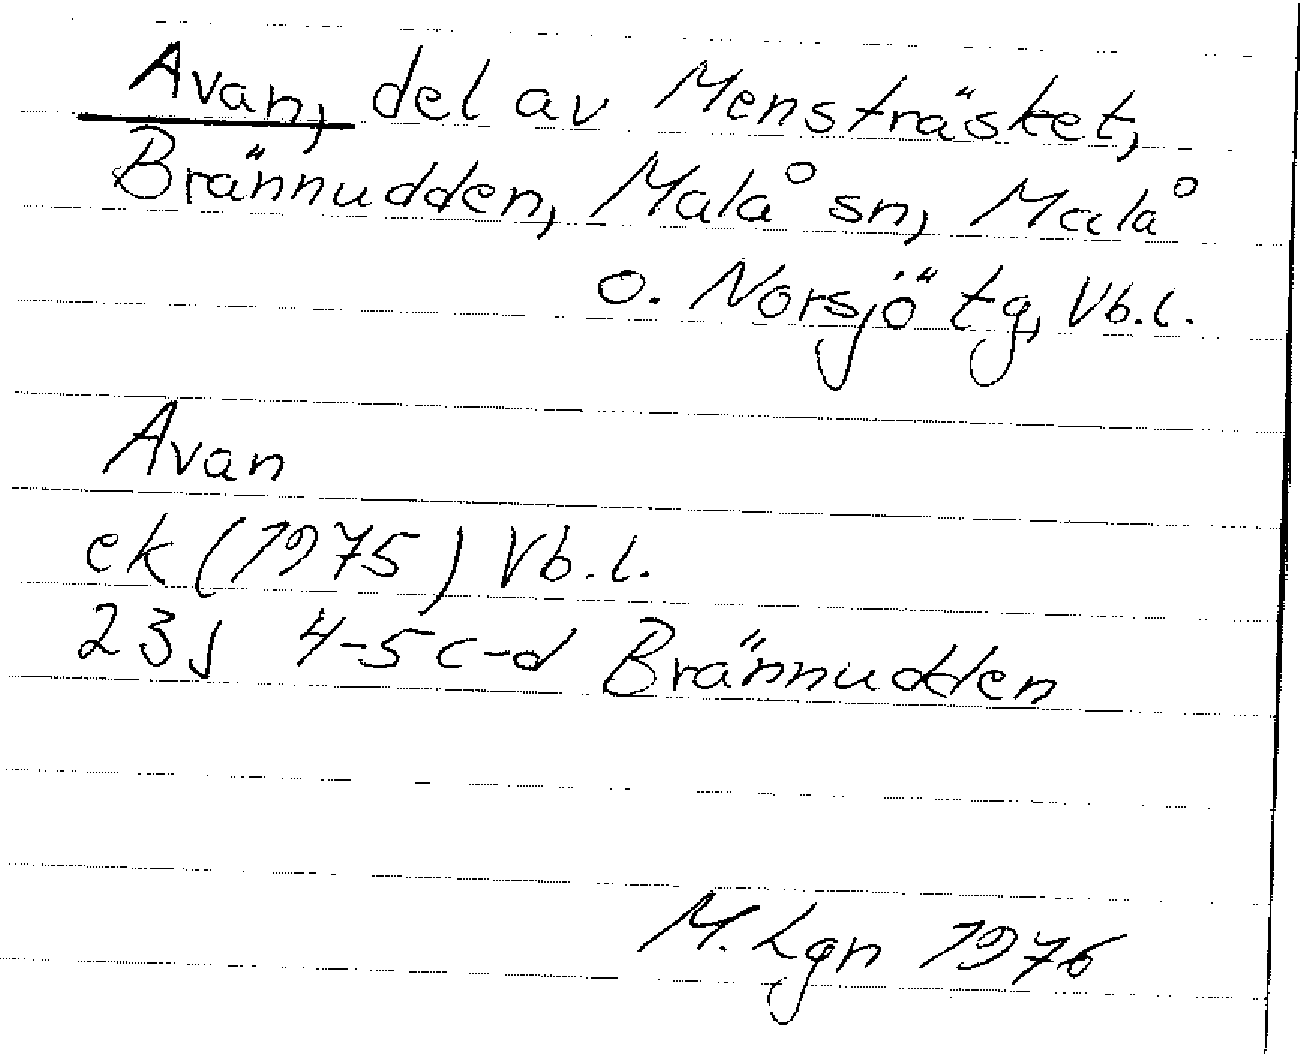 Avan, del av Mensträsket,
Brännudden, Malå sn, Malå
o. Norsjö tg, Vb.l.
Avan
ek (1975) Vb.l.
23J 4-5 c-d Brännudden
M. Lgn 1976